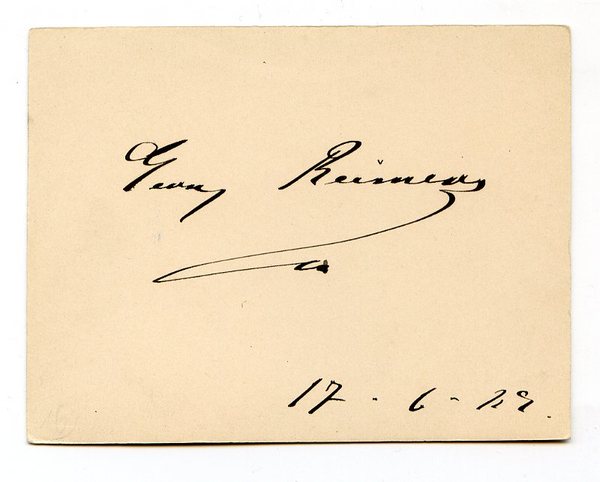 Georg Reimers
17 - 6 - 29.